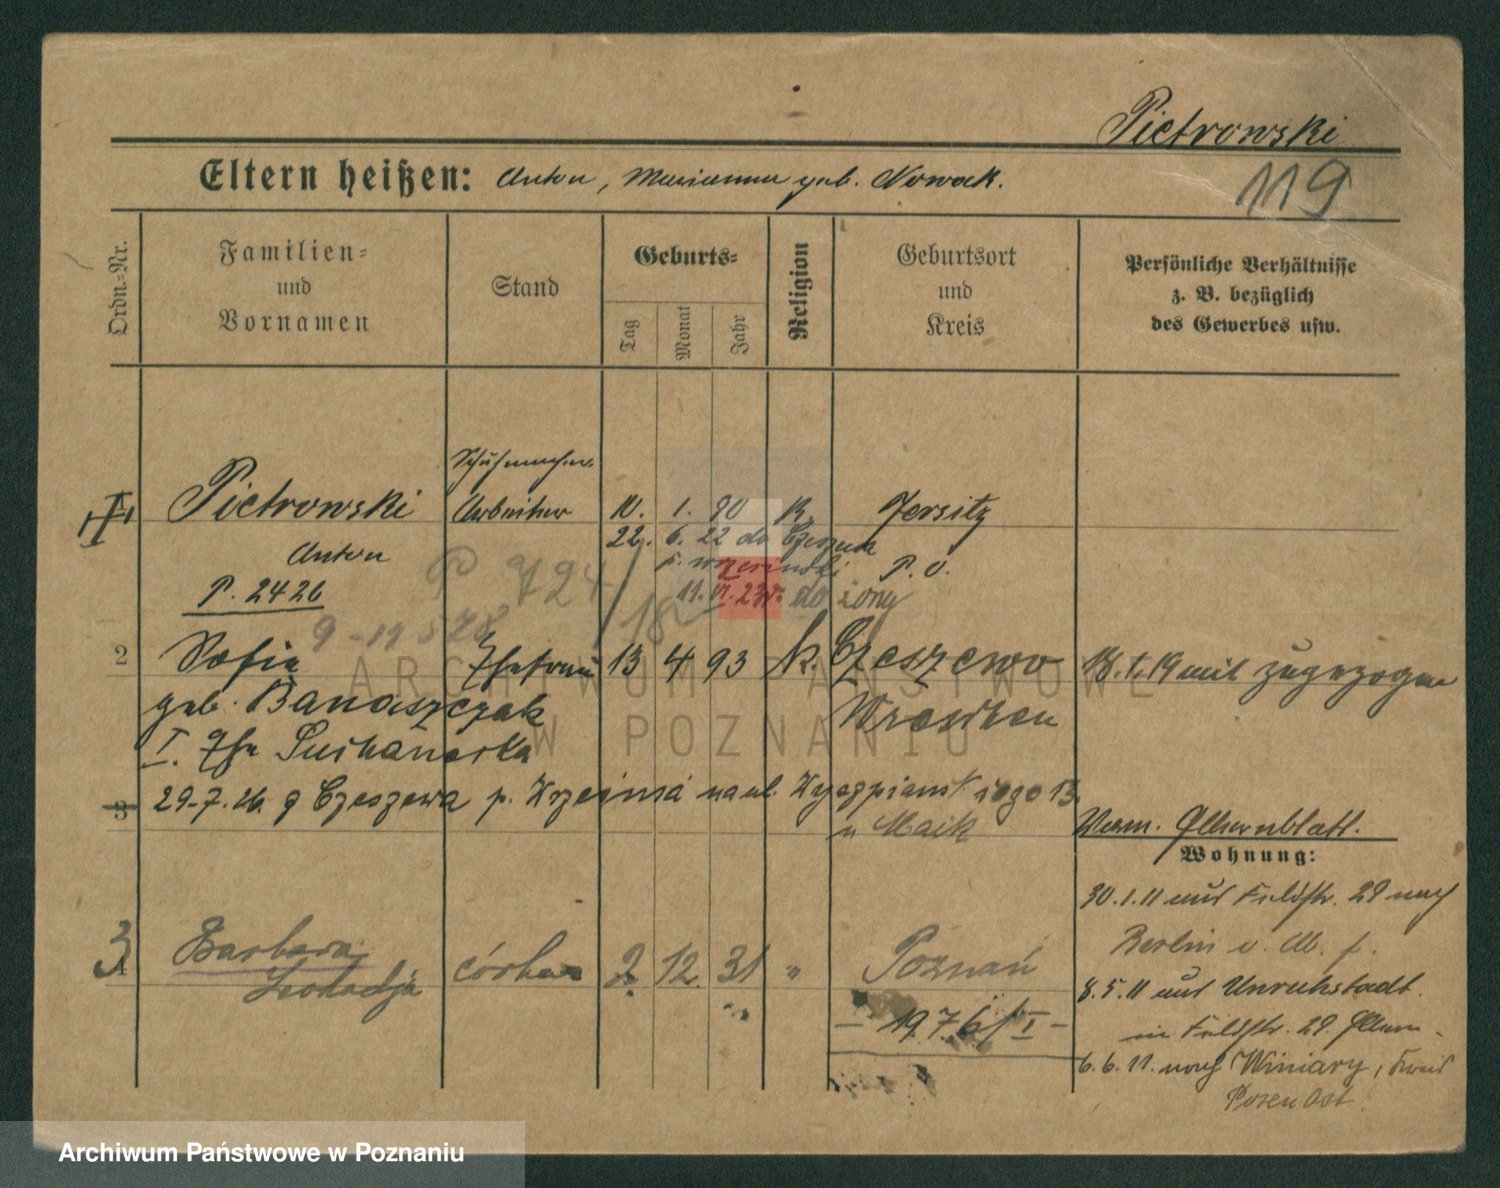 Pietrowski
119
Eltern heißen: Anton, Marianna geb. Nowak.
Ordn.=Nr.
Familien=
und
Vornamen
Stand
Geburts=
Tag
Monat
Jahr
Religion
Geburtsort
und
Kreis
Persönliche Verhältnisse
z. B. bezüglich
des Gewerbes usw.
Pietrowski
Anton
P. 2426
Arbeiter
10. 1. 90 K.
Jersitz
P. O.
22. 6. 22 do Czeszewa
p. wrzesiński
11. VI. 23 r. do żony
P 724/18
9-19578
2
Sofia
geb. Banaszczak
I. Ehe Suchanecka
Ehefrau 13 4 93 k. Czeszewo
Wreschen
18. 1. 19 mit zugezogen
3
29.7.26. z Czeszewa p. Września na ul. Wyszpiańskiego 13
u Maik
Verm. Elternblatt.
Wohnung:
30.1.11 aus Feldstr. 29 nach
Berlin
8.5.11 aus Unruhstadt
in Feldstr. 29. Eltern
6.6.11. nach Winiary, Kreis
Posen Ost
3
Barbara
Leokadja
córka 2 12. 31 "
Poznań
— 19.7.61/I —
ARCHIWUM PAŃSTWOWE
W POZNANIU
Archiwum Państwowe w Poznaniu